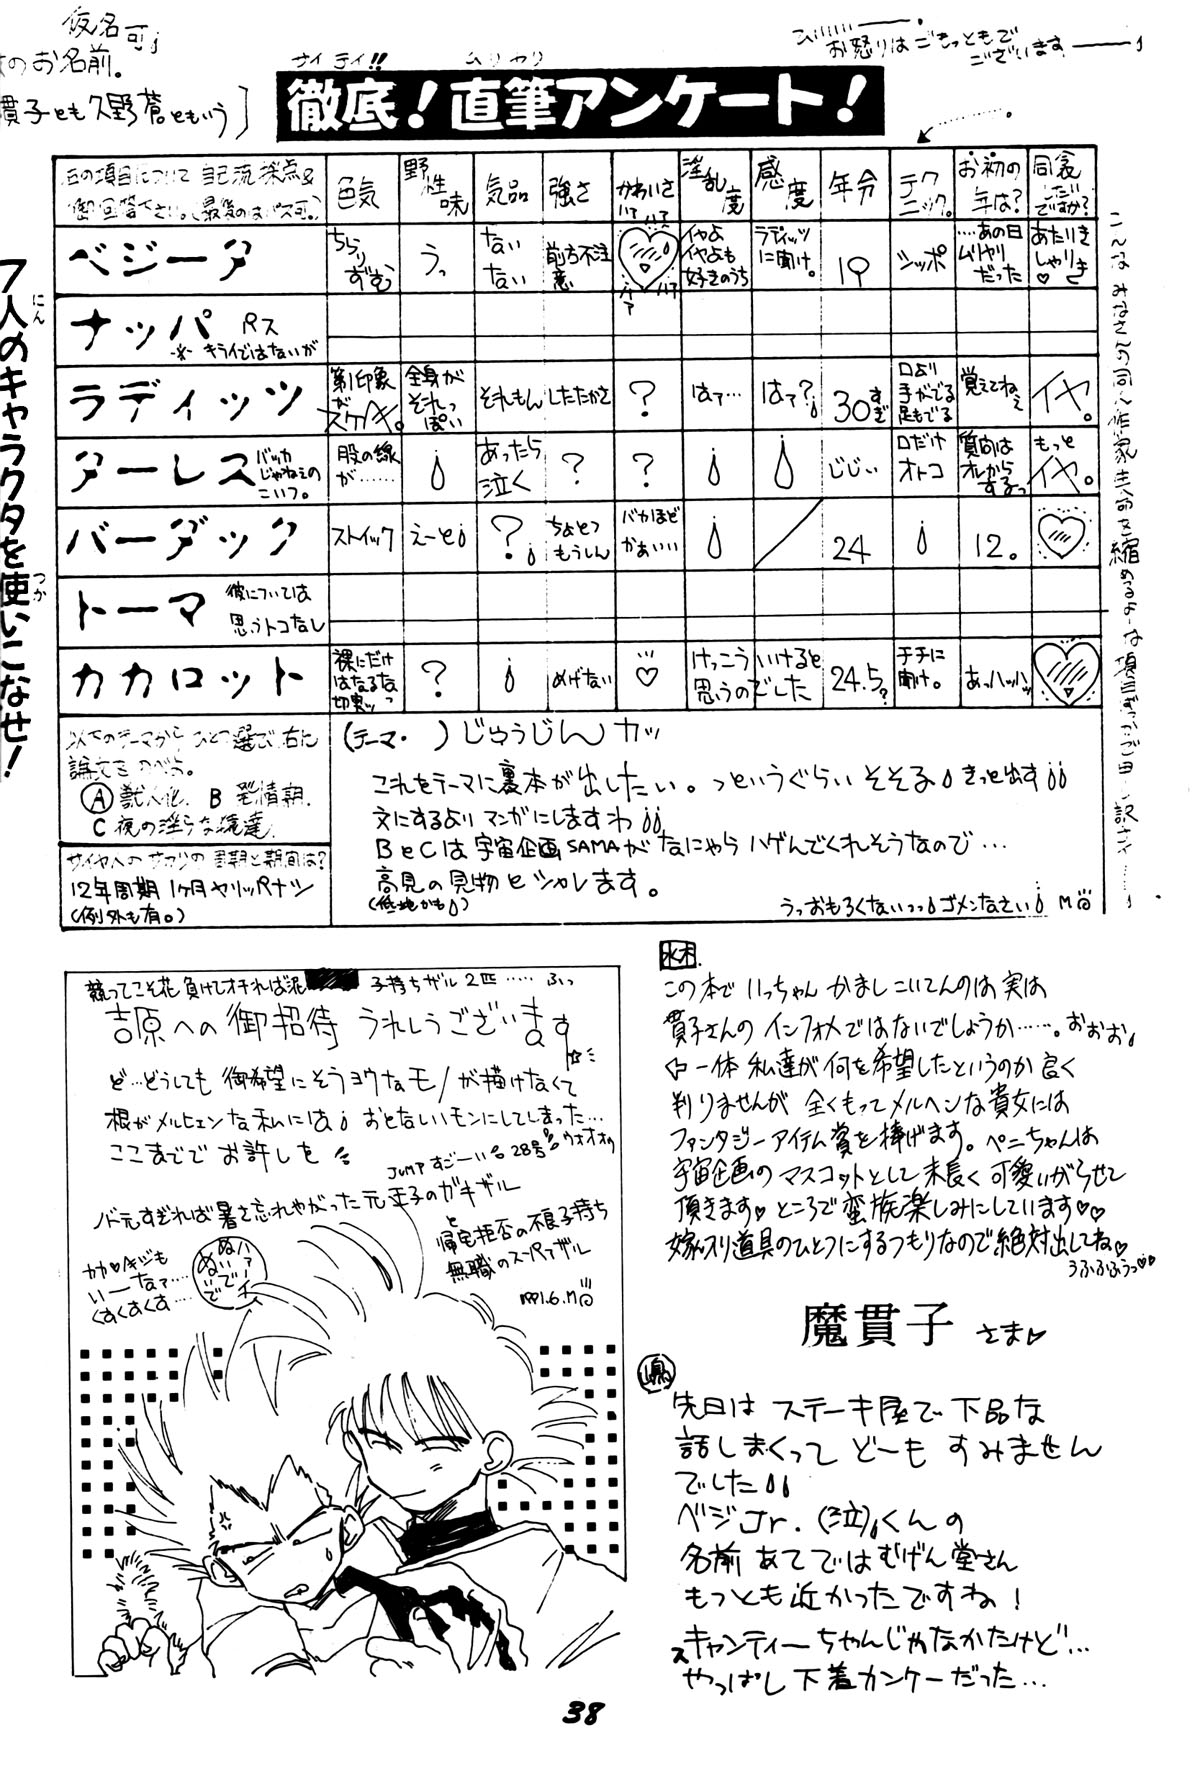 仮名可
のお名前。
貫子とも久野蒼ともいう]
お怒りはごもっともで
ございます
サイテイ!! ムリヤリ
徹底!直筆アンケート!
7人のキャラクタを使いこなせ!
にん
つか
右の項目について 自己流採点&
御回答下さい。(最後のはパス可。)
色気
野性味
気品
強さ
かわいさ
淫乱度
感度
年令
テクニック。
お初の年は?
同衾したいですか?
ベジータ
ちらりずむ
うっ
ないない
前方不注意
イヤよイヤよも好きのうち
ラディッツに聞け。
19
シッポ
……あの日ムリヤリだった
あたりきしゃりき♡
ナッパ パス
※ キライではないが
ラディッツ
第1印象がスケパンキ。
全身がそれっぽい
それもん
したたかさ
?
はァ…
はァ?
30すぎ
口より手がでる足もでる
覚えてねぇ
イヤ。
ターレス
バッカじゃねぇのこいつ。
股の線が……
あったら泣く
?
?
じじぃ
口だけオトコ
質問はオレからするっ
もっとイヤ。
バーダック
ストイック
えーと
?
ちょとつもうしん
バカほどかぁいい
24
12。
トーマ
彼については
思うトコなし
カカロット
裸にだけはなるなっ切実ッ
?
めげない
♡
けっこういけると
思うのでした
24.5?
チチに聞け。
あっハッハッ
こんなみなさんの同人作家生命を縮めるよーな項目ばっかでご申し訳なさ……
以下のテーマからひとつ選び、右に
論文をのべよ。
Ⓐ 獣人化. B 発情期.
C 夜の淫らな遠達.
サイヤ人の サカリの 周期と期間は?
12年周期 1ヶ月 ヤリッパナシ
(例外も有。)
(テーマ・ ) じゅうじんカッ
これをテーマに裏本が出したい。っというぐらい そそる きっと出す
文にするより マンガにしますわ
BとCは 宇宙企画SAMAが なにやら ハゲんでくれそうなので…
高見の見物と シャレます。
(低地かも)
うっおもろくないっっ ゴメンなさい M
競ってこそ花 負けてオチれば泥 子持ちザル 2匹…… ふっ
吉原への御招待 うれしうございます
ど…どうしても 御希望にそうヨウなモノが描けなくて
根がメルヒェンな私には おとなしいモンにしてしまった…
ここまでで お許しを
JUMP すごーい 28号 ウオオオ
ノド元すぎれば 暑さ忘れやがった 元王子のガキザル
と
帰宅拒否の不良子持ち
無職のスーパーザル
1991.6.M
ハァーイ ぬいで ぬいで
カカ♡キジも
いーなァ…
くすくすくす…
水木.
この本で いっちゃん かましこいてんのは 実は
貫子さんの インフォメではないでしょうか……。おぉおぉ
一体 私達が 何を希望したというのか 良く
判りませんが 全くもって メルヘンな貴女には
ファンタジーアイテム賞を捧げます。ペニちゃんは
宇宙企画のマスコットとして末長く可愛いがらせて
頂きます♡ところで蛮族楽しみにしています♡♡
嫁入り道具のひとつにするつもりなので絶対出してね♡
うふふふうっ♡♡
魔貫子 さま♡
嶋
先日は ステーキ屋で 下品な
話しまくって どーも すみません
でした
ベジJr.(泣)くんの
名前 あてでは むげん堂さん
もっとも近かったですね!
スキャンティーちゃんじゃなかたけど…
やっぱし 下着カンケーだった…
38